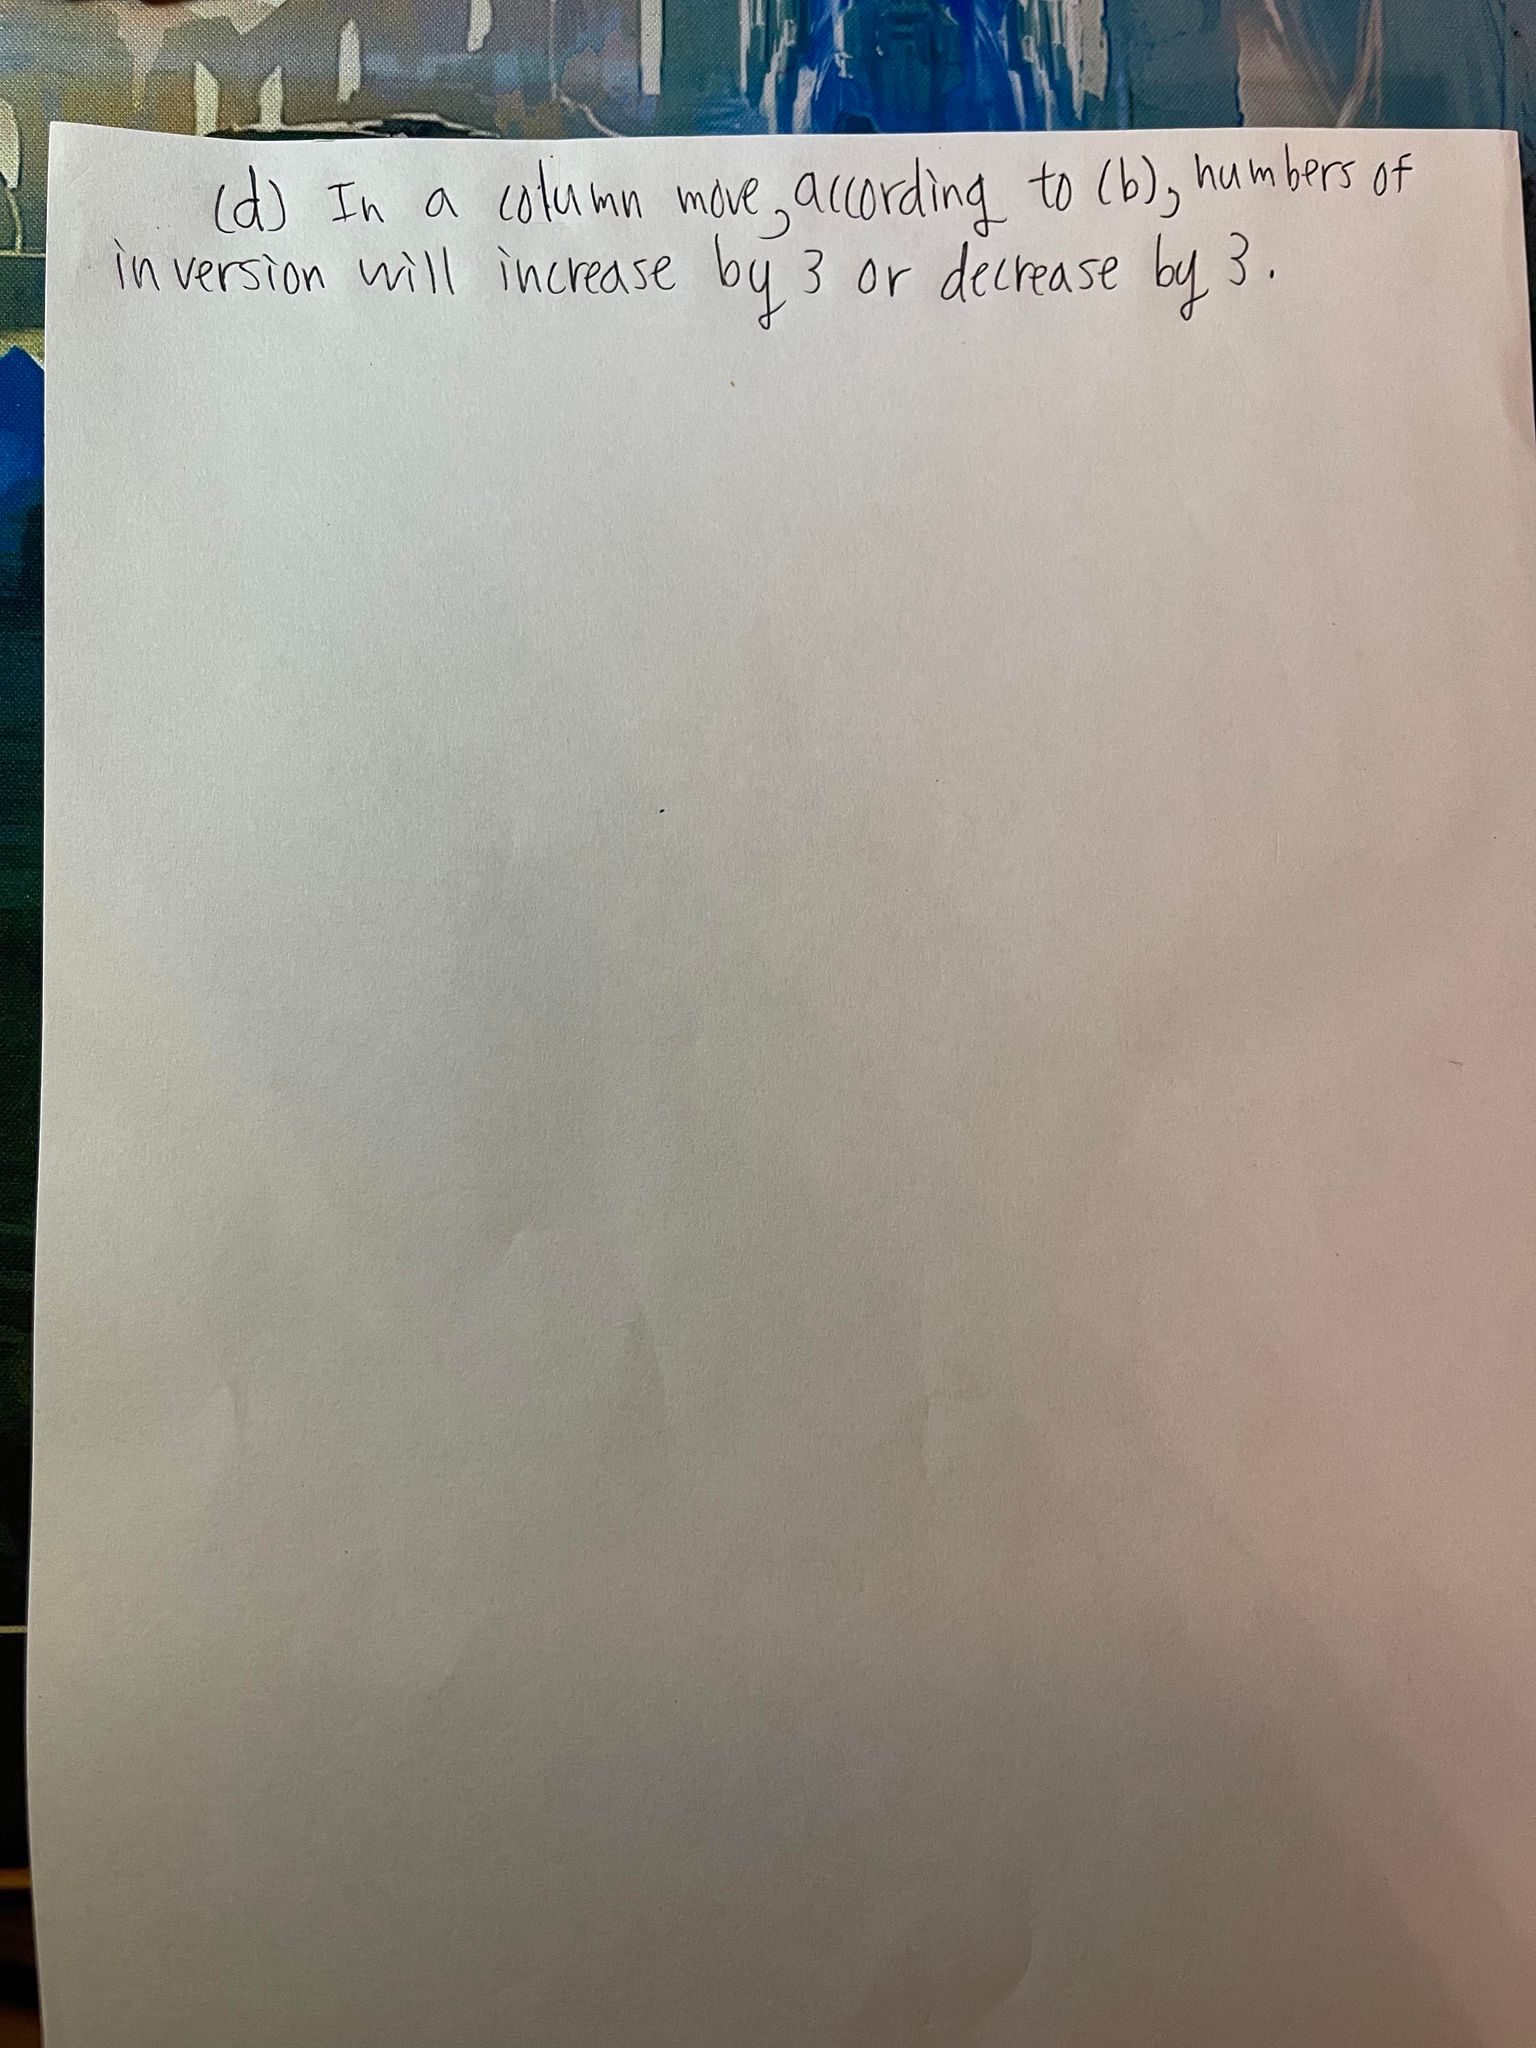 (d) In a column move, according to (b), numbers of
inversion will increase by 3 or decrease by 3.